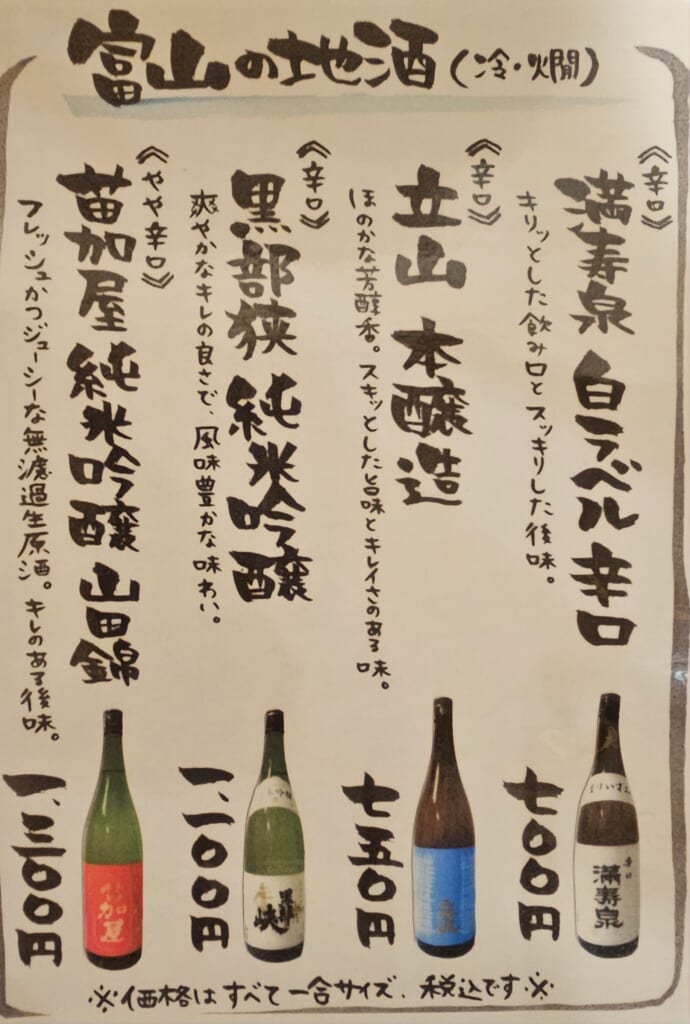 富山の地酒(冷・燗)
《辛口》
満寿泉 白ラベル 辛口
キリッとした飲み口とスッキリした後味。
七〇〇円
《辛口》
立山 本醸造
ほのかな芳醇香。スキッとした旨味とキレイさのある味。
七五〇円
《辛口》
黒部狭 純米吟醸
爽やかなキレの良さで、風味豊かな味わい。
一、一〇〇円
《やや辛口》
苗加屋 純米吟醸 山田錦
フレッシュかつジューシーな無濾過生原酒。キレのある後味。
一、三〇〇円
辛口
満寿泉
峡
加屋
※価格はすべて一合サイズ、税込です※